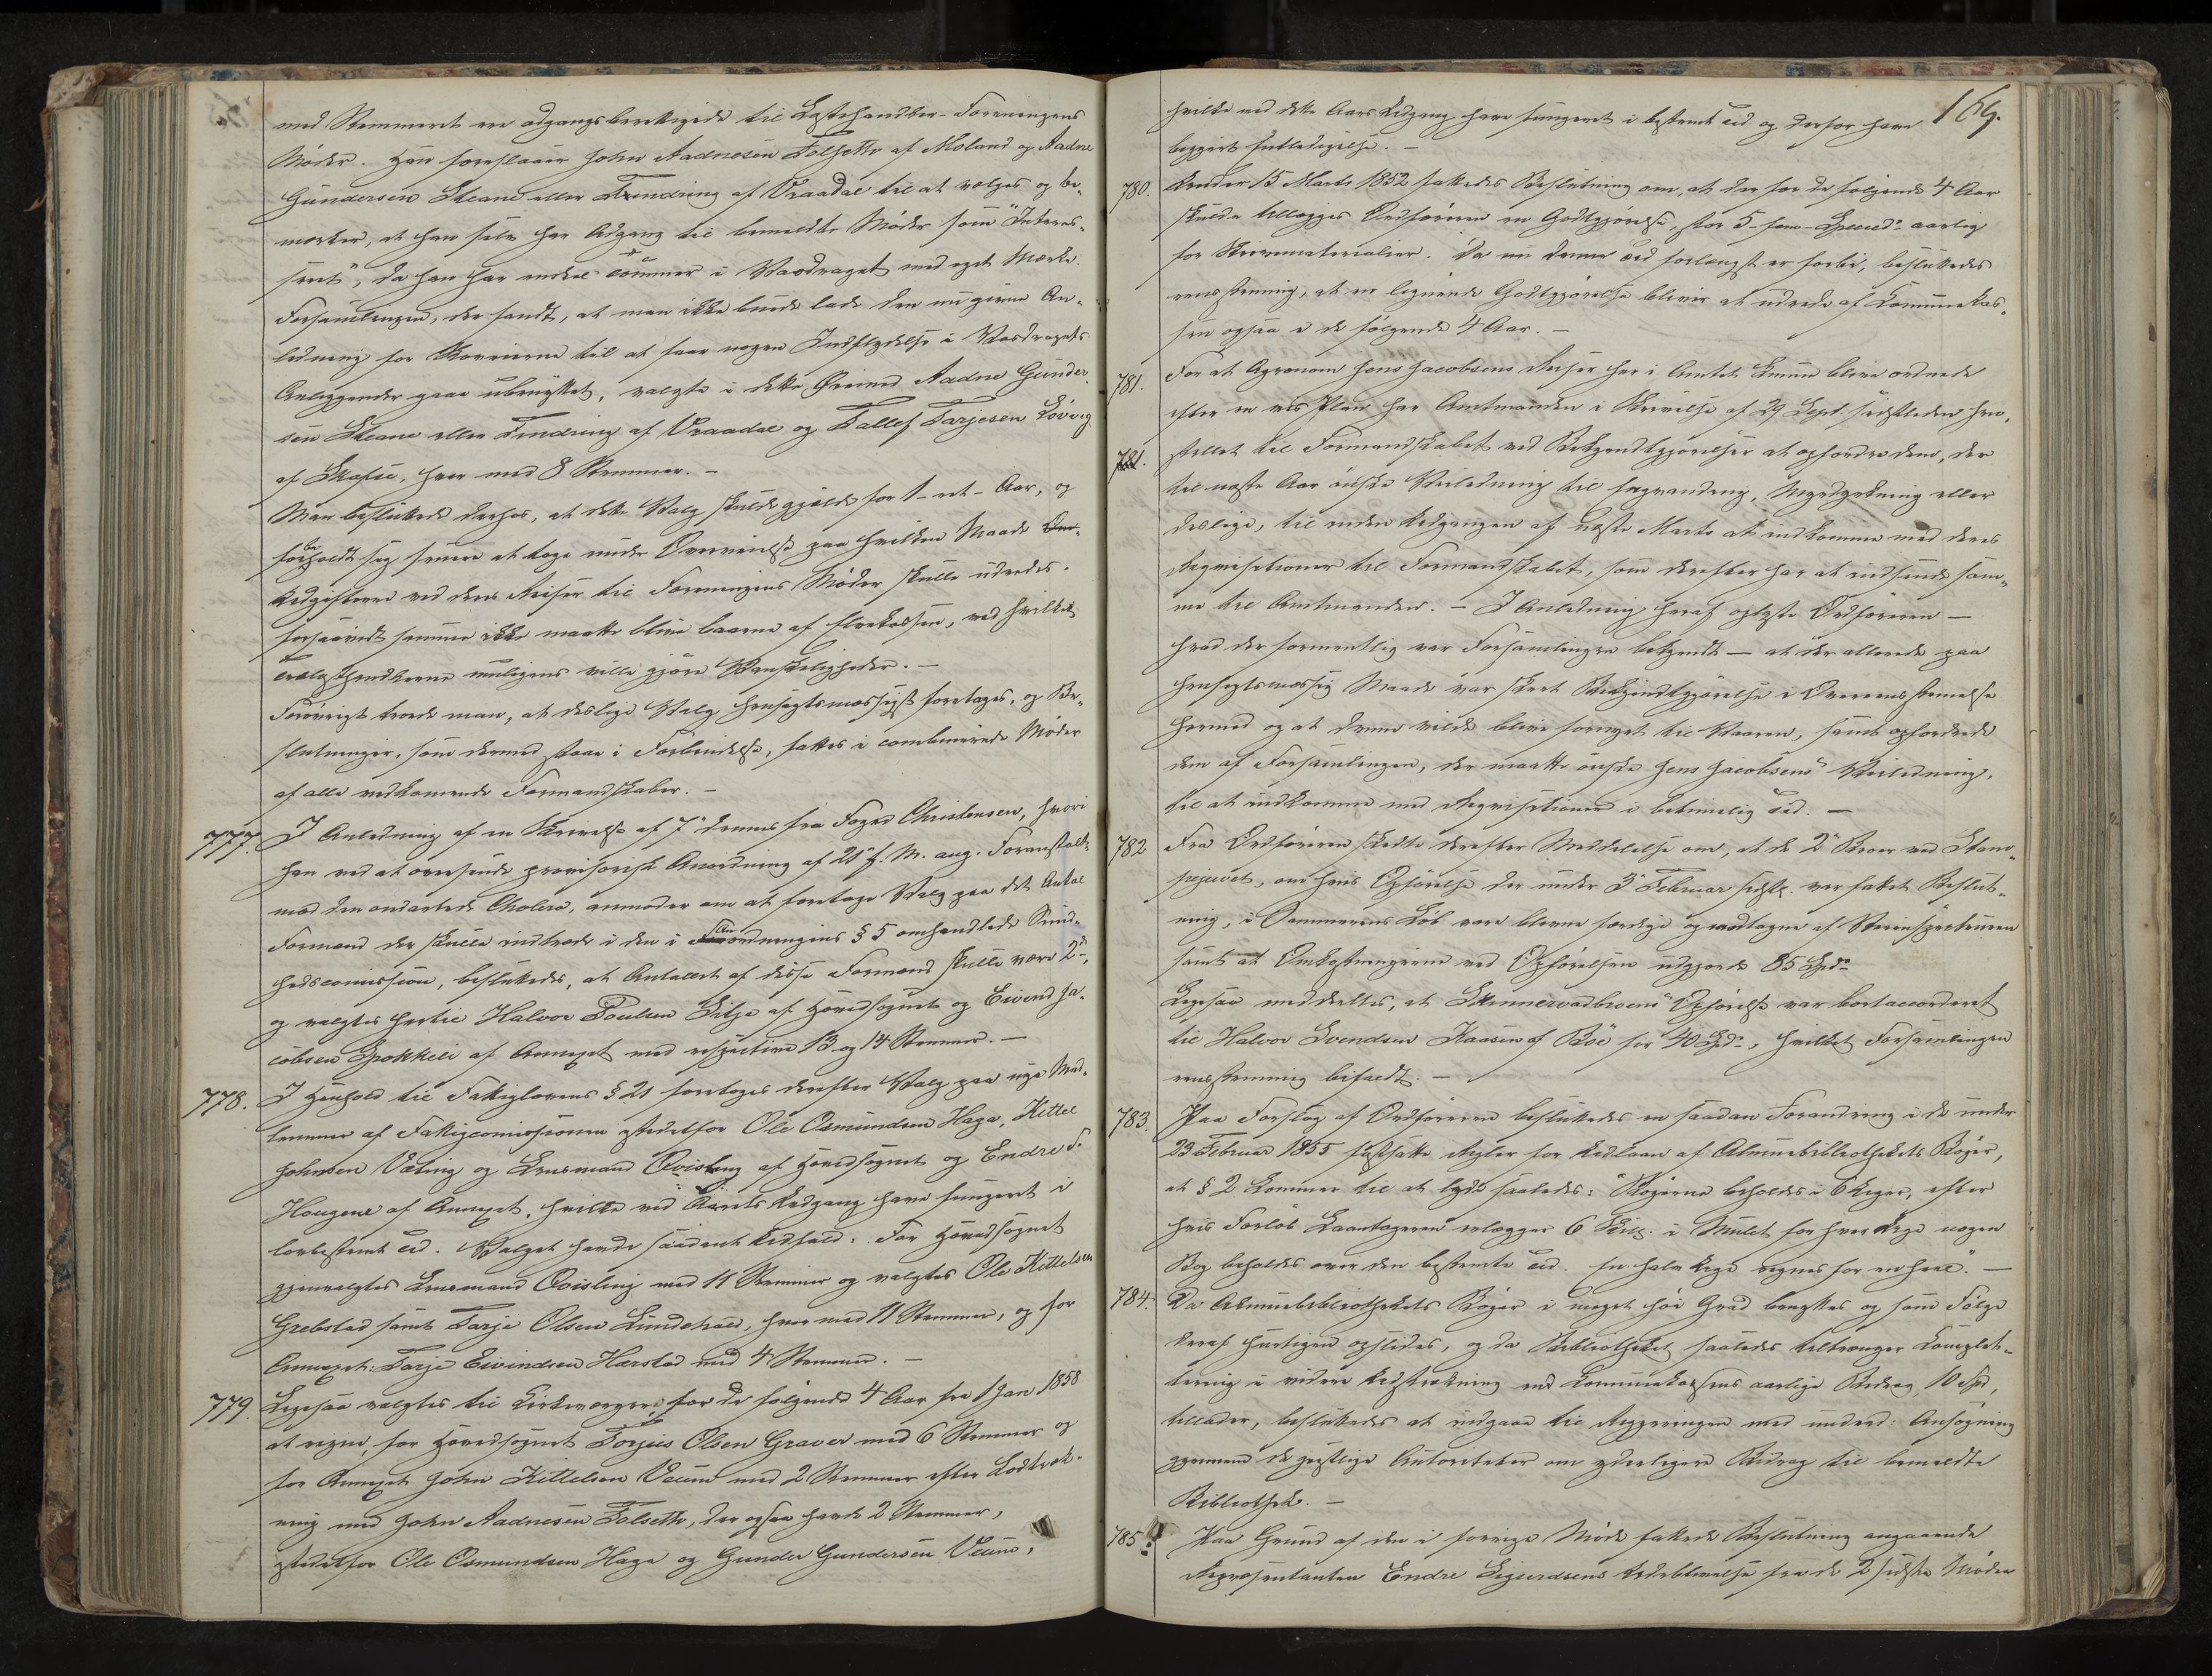 med Stemmeret ere adgangsberettigede til Lastehandler-Foreningens
Møder. Han foreslaaer John Aadnesen Folseth af Moland og Aadne
Gundersen Steane eller Tindring af Vraadal til at vælges og be-
mærker, at han selv har Adgang til bemeldte Møder som "Interes-
seret", da han har endeel Tømmer i Vasdraget med eget Mærke.
Forsamlingen, der fandt, at man ikke burde lade den nu givne An-
ledning for Skoveierne til at faae nogen Indflydelse i Vasdragets
Anliggender gaae ubenyttet, valgte i dette Øiemed Aadne Gunder-
sen Steane eller Tindring af Vraadal og Tallef Tarjesen Løvvig
af Skafse, hver med 8 Stemmer. -
Man besluttede derhos, at dette Valg skulde gjælde for 1 - et - Aar, og
forbeholdt sig senere at tage under Overveielse paa hvilken Maade
Udgifterne ved deres Reiser til Foreningens Møder skulle udredes,
forsaavidt samme ikke maatte blive baarne af Elvekassen, ved hvilket
Trælasthandlerne muligens ville gjøre Vanskeligheder. -
Forøvrigt troede man, at deslige Valg hensigtsmæssigst foretages, og Be-
slutninger, som dermed staae i Forbindelse, fattes i combinerede Møder
af alle vedkomende Formandskaber. -
777. I Anledning af en Skrivelse af 7de dennes fra Foged Christensen, hvori
han ved at oversende provisorisk Anordning af 21de f. M. ang. Foranstalt.
mod den ondartede Cholera, anmoder om at foretage Valg paa det Antal
Formænd der skulle indtræde i den i Anordningens § 5 omhandlede Sund-
hedscomission, besluttedes, at Antallet af disse Formænd skulle være 2de,
og valgtes hertil Halvor Poulsen Tilje af Hovedsognet og Eivend Ja-
cobsen Spokkeli af Annexet med respective 13 og 14 Stemmer. -
778. I Henhold til Fattiglovens § 21 foretoges derefter Valg paa nye Med-
lemmer af Fattigcomissionen istedetfor Ole Osmundsen Haga, Kittel
Johnsen Væting og Lensmand Qvisling af Hovedsognet og Endre S.
Haugene af Annexet, hvilke ved Aarets Udgang have fungeret i
lovbestemt Tid. Valget havde saadant Udfald: For Hovedsognet
gjenvalgtes Lensmand Qvisling med 11 Stemmer og valgtes Ole Kittelsen
Grebstad samt Tarje Olsen Lundehaed, hver med 11 Stemmer, og for
Annexet: Tarje Eivindsen Hærstad med 4 Stemmer. -
779. Ligesaa valgtes til Kirkeværger, for de følgende 4 Aar fra 1 Jan 1858
at regne, for Hovedsognet Torjus Olsen Graver med 6 Stemmer og
for Annexet John Kittelsen Veum med 2 Stemmer efter Lodtræk-
ning med John Aadnesen Folseth, der ogsaa havde 2 Stemmer,
istedetfor Ole Osmundsen Haga og Gunder Gundersen Veum,
169.
hvilke ved dette Aars Udgang have fungeret i bestemt Tid og derfor have
begjært Entledigelse. -
780. Under 15 Marts 1852 fattedes Beslutning om, at der for de følgende 4 Aar
skulde tillægges Ordføreren en Godtgjørelse, stor 5 - fem - Specied. aarlig
for Skrivematerialier. Da nu denne Tid forlængst er forbi, besluttedes
eensstemmig, at en lignende Godtgjørelse bliver at udrede af Communekas-
sen ogsaa i de følgende 4 Aar. -
781. For at Agronom Jens Jacobsens Reiser her i Amtet kunne blive ordnede
efter en vis Plan har Amtmanden i Skrivelse af 29 Sept. sidstleden hen-
781. stillet til Formandskabet ved Bekjendtgjørelser at opfordre dem, der
til næste Aar ønske Veiledning til Engvanding, Myrdyrkning eller
deslige, til inden Udgangen af næste Marts at indkomme med deres
Reqvisitioner til Formandskabet, som derefter har at indsende sam-
me til Amtmanden. - I Anledning heraf oplyste Ordføreren -
hvad der formentlig var Forsamlingen bekjendt - at der allerede paa
hensigtsmæssig Maade var skeet Bekjendtgjørelse i Overeensstemmelse
hermed og at denne vilde blive fornyet til Vaaren, samt opfordrede
dem af Forsamlingen, der maatte ønske Jens Jacobsens Veiledning,
til at indkomme med Reqvisitioner i betimelig Tid. -
782 Fra Ordføreren skedte derefter Meddelelse om, at de 2de Broer ved
om hvis Opførelse der under 3de Februar sidstl. var fattet Beslut-
ning, i Sommerens Løb vare blevne færdige og modtagne af Veiinspecteuren
samt at Omkostningerne ved Opførelsen udgjorde 85 Spd.
Ligesaa meddeeltes, at Skinnervadbroens Opførelse var bortaccorderet
til Halvor Svendsen Kaasen af Bøe for 40 Spd., hvilket Forsamlingen
eensstemmig bifaldt. -
783. Paa Forslag af Ordføreren besluttedes en saadan Forandring i de under
23 Februar 1855 fastsatte Regler for Udlaan af Almuebibliothekets Bøger,
at § 2 kommer til at lyde saaledes: "Bøgerne beholdes i 6 Uger, efter
hvis Forløb Laantageren erlægger 6 Skill. i Mulct for hver Uge nogen
Bog beholdes over den bestemte Tid. En halv Uge regnes for en heel". -
784. Da Almuebibliothekets Bøger i meget høi Grad benyttes og som Følge
deraf hurtigen opslides, og da Bibliotheket saaledes tiltrænger Complet-
tering i videre Udstrækning end Communekassens aarlige Bidrag, 10 Spd,
tillader, besluttedes at indgaae til Regjeringen med underd: Ansøgning
gjennem de geistlige Autoriteter om yderligere Bidrag til bemeldte
Bibliothek. -
785. Paa Grund af den i forrige Møde fattede Beslutning angaaende
Repræsentanten Endre Sigurdsens Udeblivelse fra de 2 sidste Møder